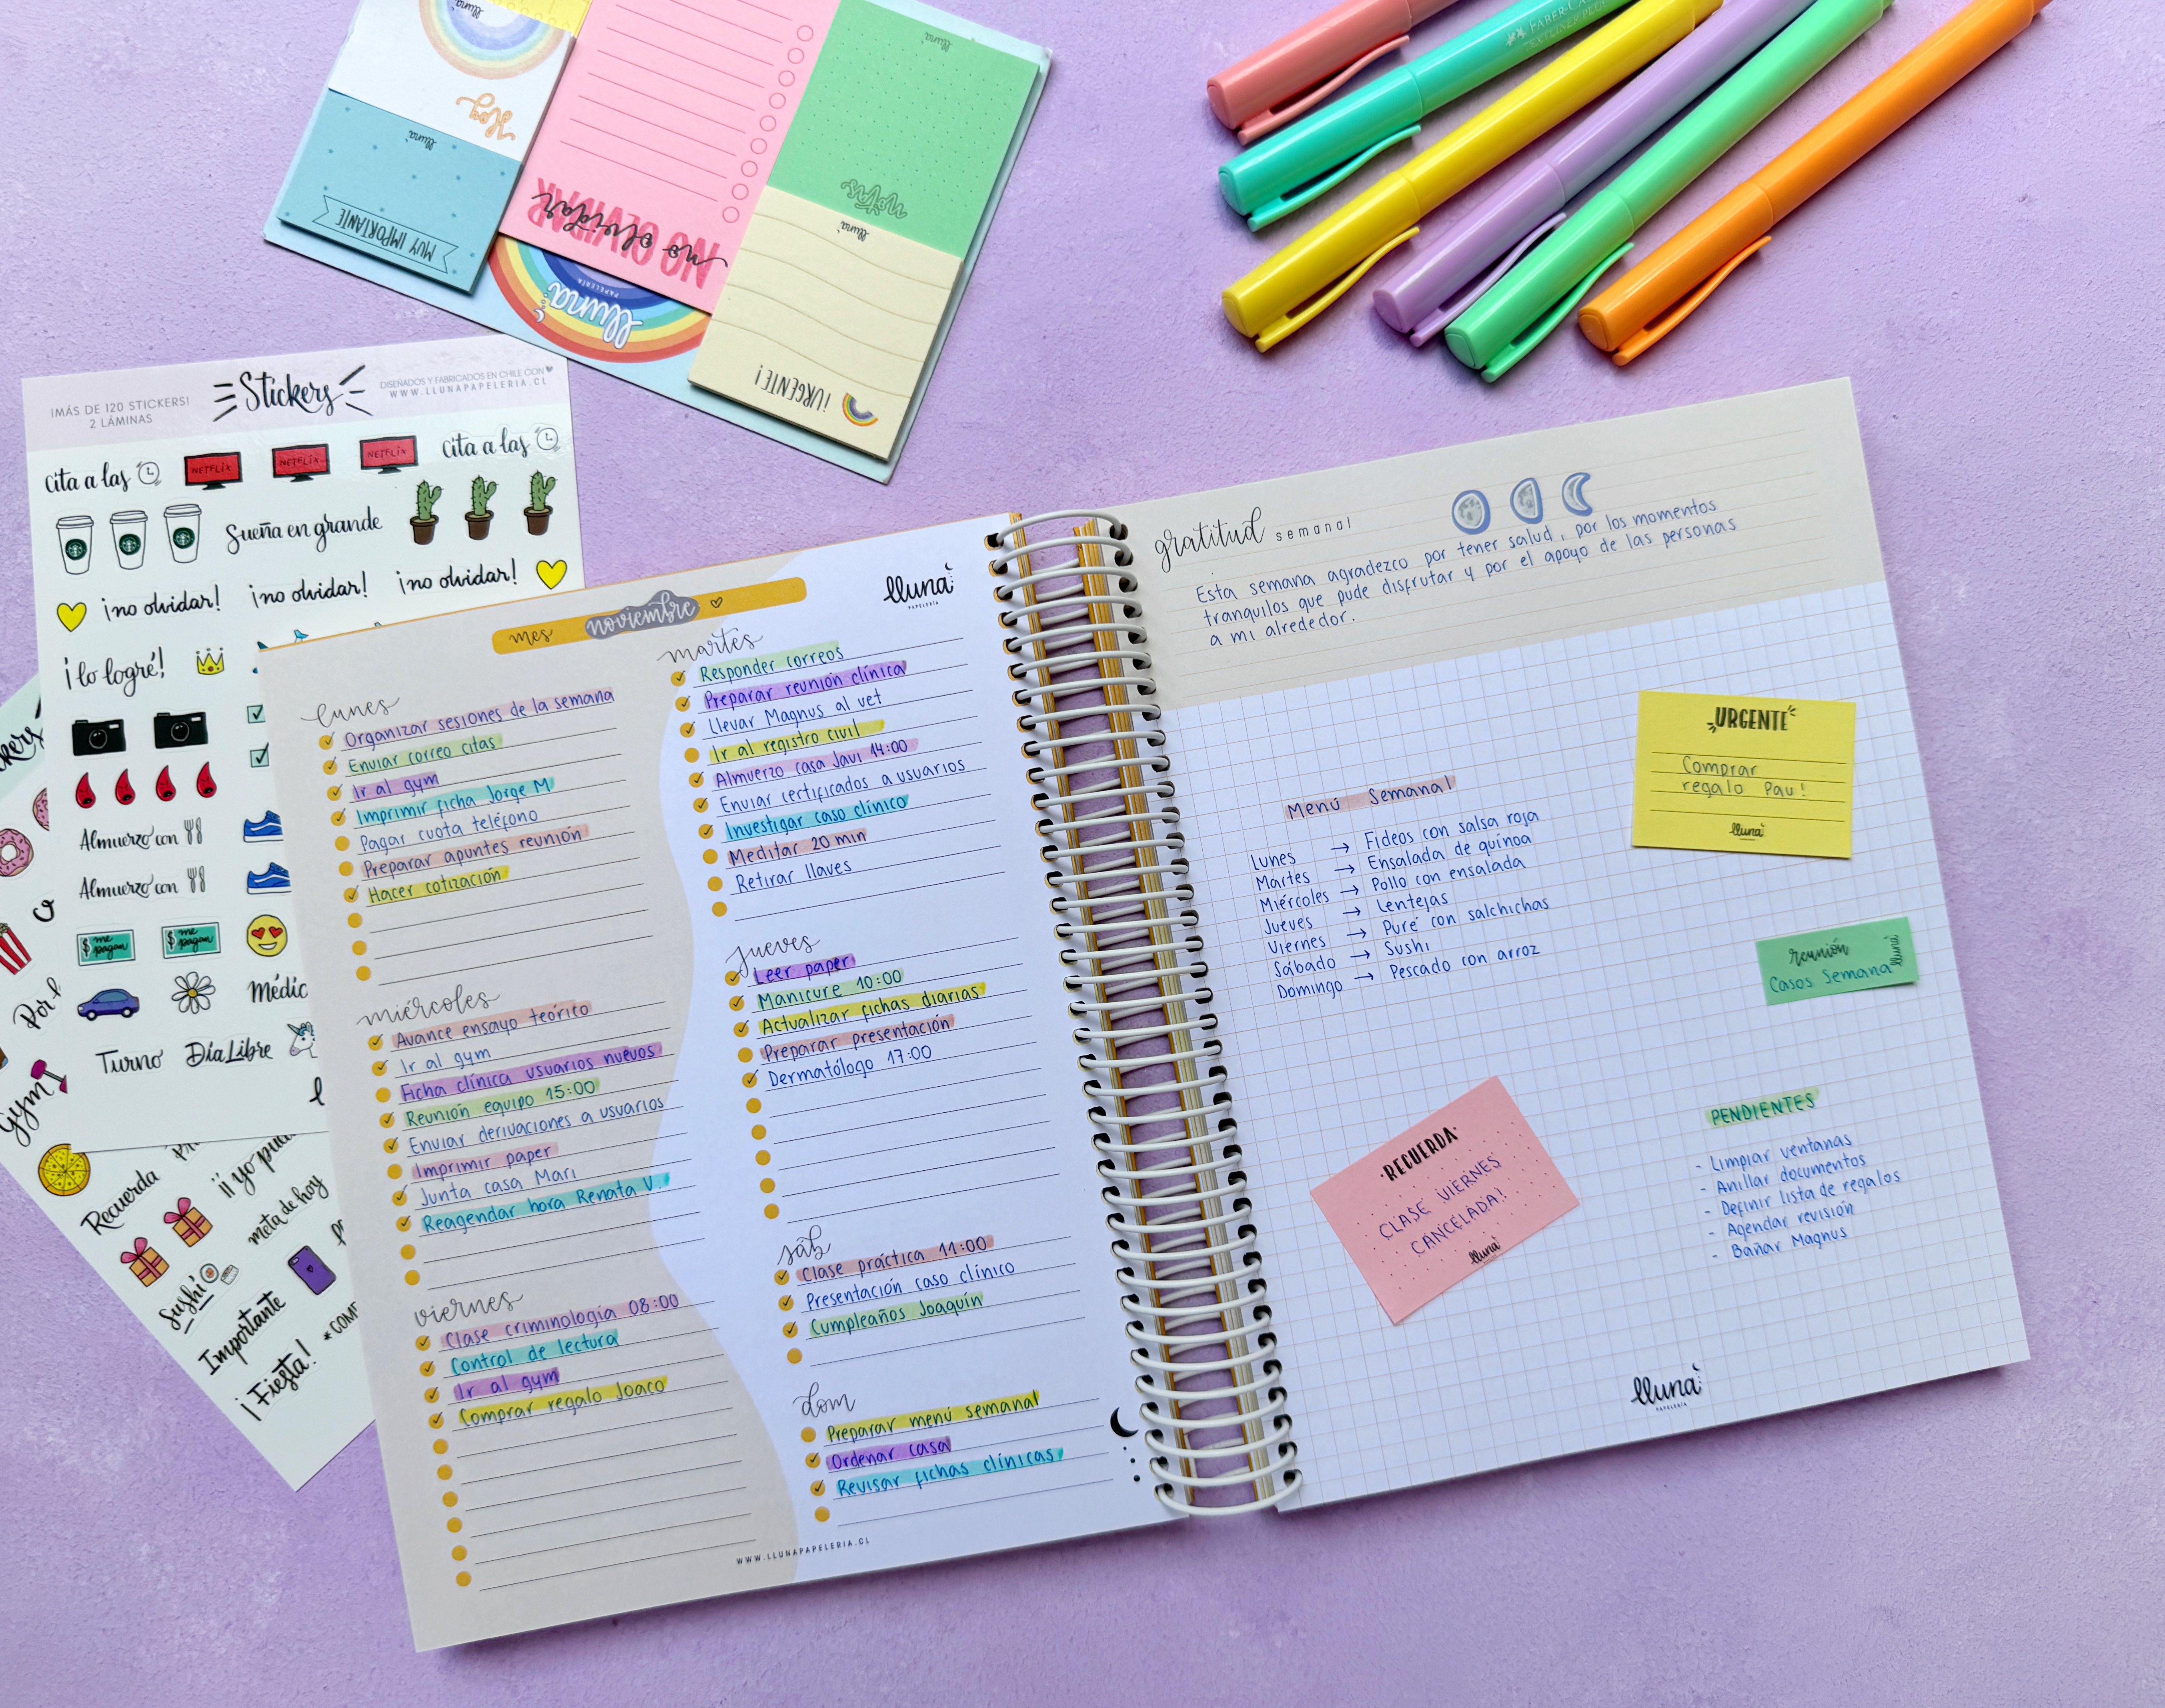 lluna
Hoy
lluna
MUY IMPORTANTE
NO OLVIDAR
no olvidar
lluna
notas
lluna
¡URGENTE!
lluna
PAPELERÍA
FABER-CA
¡MÁS DE 120 STICKERS!
2 LÁMINAS
Stickers
DISEÑADOS Y FABRICADOS EN CHILE CON
WWW.LLUNAPAPELERIA.CL
cita a las
NETFLIX
NETFLIX
NETFLIX
cita a las
Sueña en grande
¡no olvidar!
¡no olvidar!
¡no olvidar!
¡lo logré!
Almuerzo con
Almuerzo con
$ me pagan
$ me pagan
Médic
Turno
Día Libre
Gym
Recuerda
meta de hoy
Sushi
Importante
¡Fiesta!
mes noviembre
lluna
PAPELERÍA
lunes
Organizar sesiones de la semana
Enviar correo citas
Ir al gym
Imprimir ficha Jorge M
Pagar cuota teléfono
Preparar apuntes reunión
Hacer cotización
martes
Responder correos
Preparar reunión clínica
Llevar Magnus al vet
Ir al registro civil
Almuerzo casa Javi 14:00
Enviar certificados a usuarios
Investigar caso clínico
Meditar 20 min
Retirar llaves
miércoles
Avance ensayo teórico
Ir al gym
Ficha clínica usuarios nuevos
Reunión equipo 15:00
Enviar derivaciones a usuarios
Imprimir paper
Junta casa Mari
Reagendar hora Renata V.
jueves
Leer paper
Manicure 10:00
Actualizar fichas diarias
Preparar presentación
Dermatólogo 17:00
viernes
Clase criminología 08:00
Control de lectura
Ir al gym
Comprar regalo Joaco
sáb
Clase práctica 11:00
Presentación caso clínico
Cumpleaños Joaquín
dom
Preparar menú semanal
Ordenar casa
Revisar fichas clínicas
WWW.LLUNAPAPELERIA.CL
gratitud semanal
Esta semana agradezco por tener salud, por los momentos
tranquilos que pude disfrutar y por el apoyo de las personas
a mi alrededor.
URGENTE
Comprar
regalo Pau!
lluna
Menú Semanal
Lunes → Fideos con salsa roja
Martes → Ensalada de quínoa
Miércoles → Pollo con ensalada
Jueves → Lentejas
Viernes → Puré con salchichas
Sábado → Sushi
Domingo → Pescado con arroz
reunión
Casos Semana
lluna
RECUERDA
CLASE VIERNES
CANCELADA!
lluna
PENDIENTES
- Limpiar ventanas
- Anillar documentos
- Definir lista de regalos
- Agendar revisión
- Bañar Magnus
lluna
PAPELERÍA